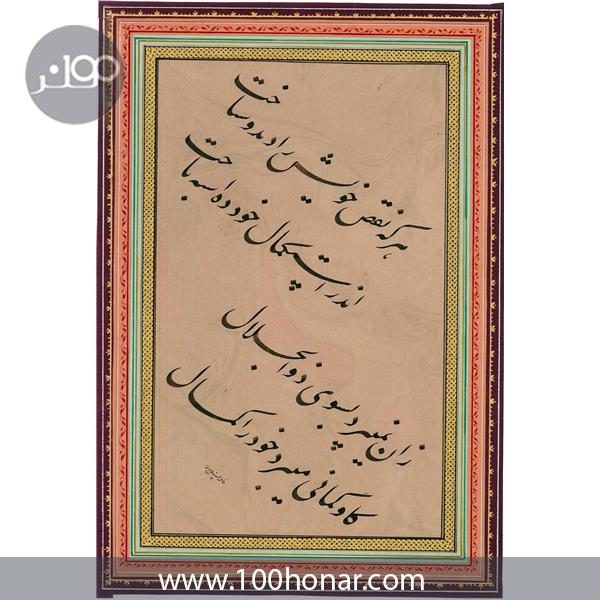 ۱۰۰هنر
هر که نقص خویش را دید و شناخت
اندر استکمال خود ده اسبه تاخت
زان نمی‌پرد بسوی ذوالجلال
کاو گمانی میبرد خود را کمال
www.100honar.com